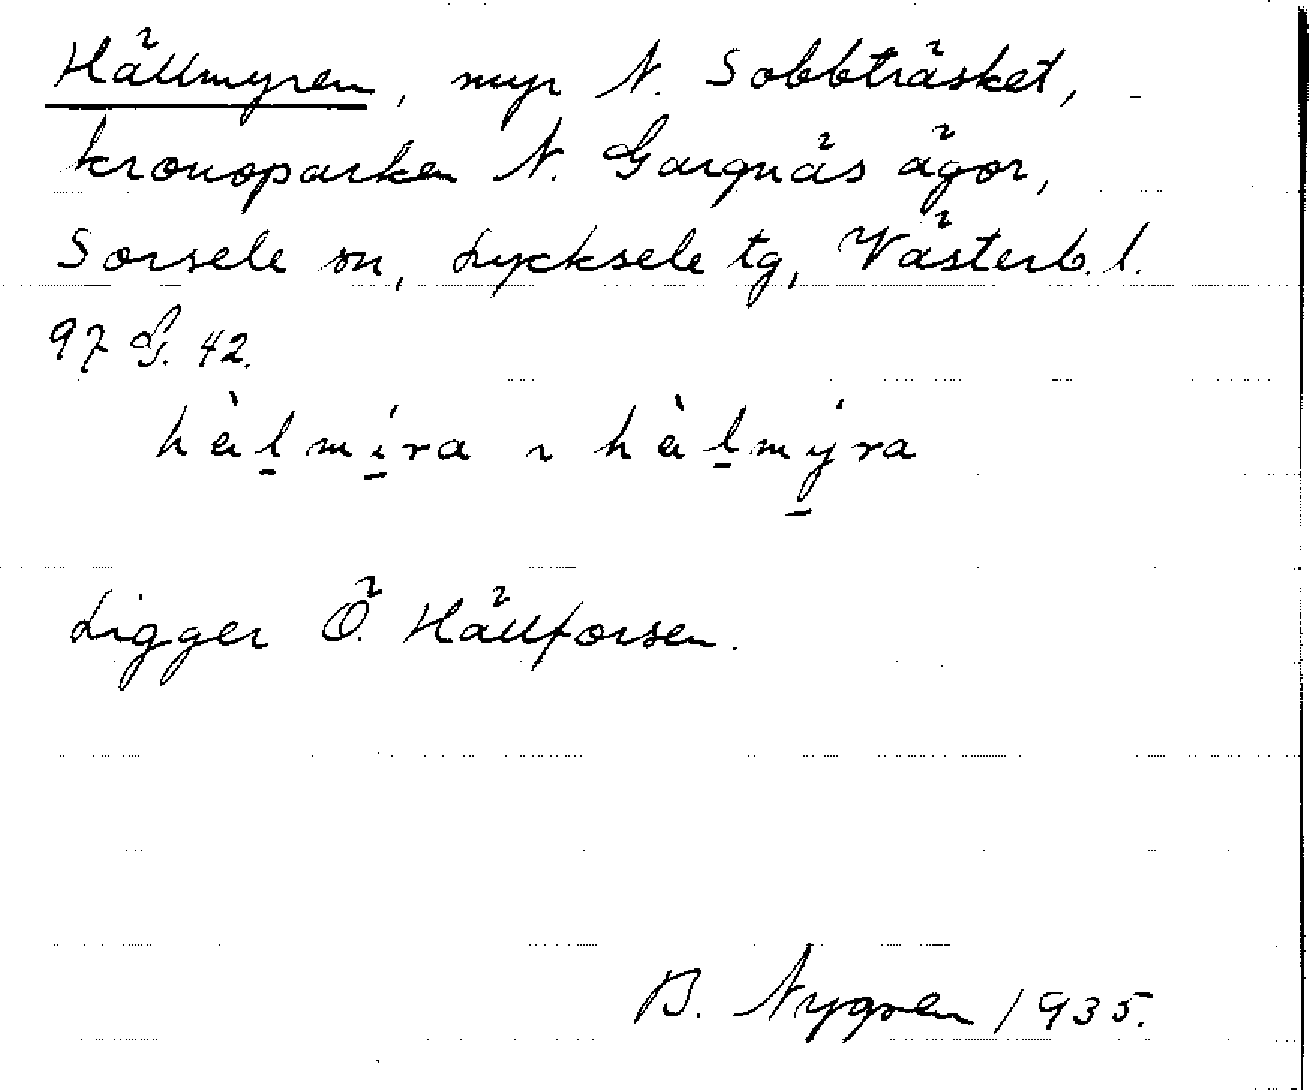 Hällmyren, myr N. Sobbträsket,
kronoparken N. Gargnäs ägor,
Sorsele sn, Lycksele tg, Västerb. l.
97 G. 42.
hä̀l̠mí̠ra ~ hä̀l̠mý̠ra
Ligger Ö. Hällforsen.
B. Nygren 1935.